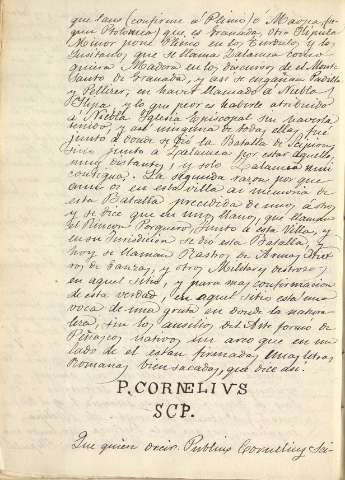 que Laus (conforme a Plinio) ó Magna se-
gun Ptolomeo) que es Granada, otra Ilipula
Minor pone Plinio en los Turdulos y la
Lusitano, que se llama Zalamea como
quiera Madera en los discursos de el Monte
Santo de Granada, y así se engañan Padilla
y Pellicer, en haver llamado a Niebla,
Ilipa y lo que peor es haberle atribuido
á Niebla Iglesia Episcopal sin haverla
tenido, y así ninguna de todas ellas, fué
junto a donde se dió la Batalla de Scipion,
sino junto a Zalamea por estar aquellas
muy distantes y solo Zalamea mui
contigua. La segunda razon por que
aun oi en esta villa ai memoria de
esta Batalla precedida de unos, á otros
y se dice que en un llano, que llaman
el Rincon Porquero, junto a esta Villa, y
en su Jurisdicion se dio esta Batalla, y
hoy se llaman Rastros de Armas, Hier-
ros de Lanzas, y otros
en aquel sitio, y para mas confirmacion
de esta verdad, en aquel sitio está una
voca de una gruta en donde la natura-
leza, sin los ausilios del Arte formo de
Peñascos nativos un arco que en un
lado de el estan firmadas unas letras
Romanas bien sacadas, que dice asi.
P. CORNELIVS
SCP.
Que quien decir. Publius Cornelius Sci-